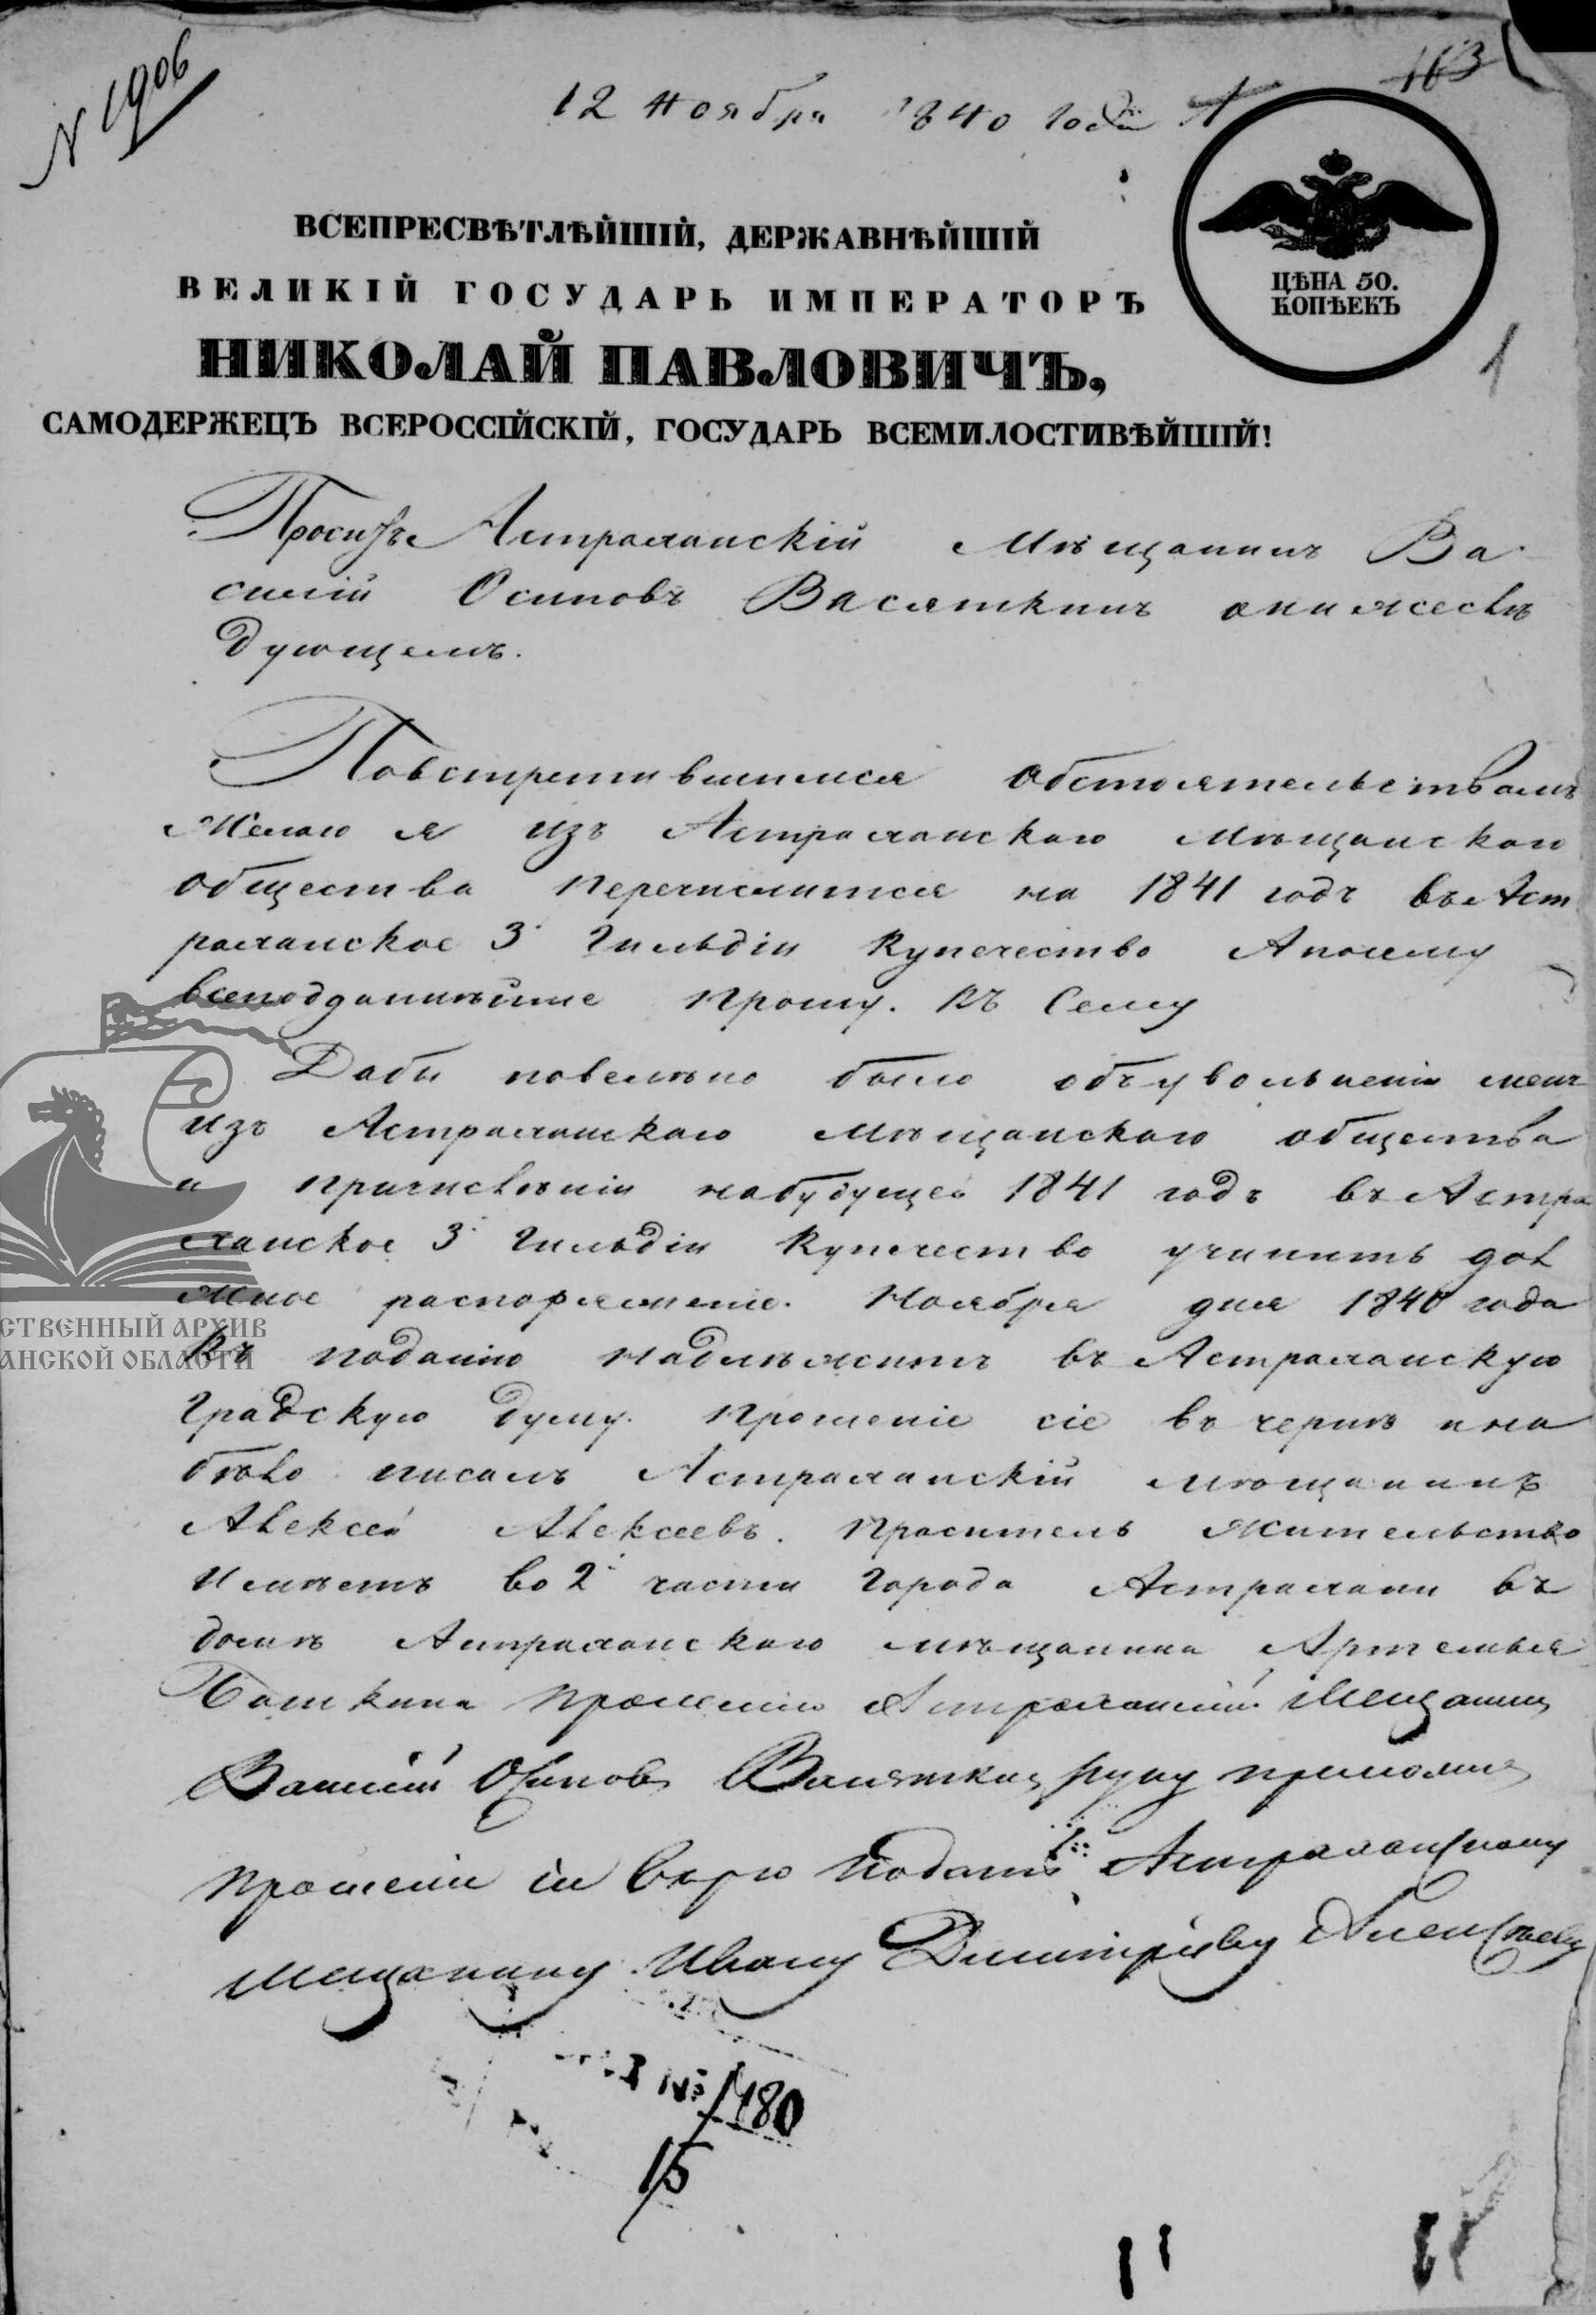 N 1906
163
12 ноября 1840 года
ВСЕПРЕСВѢТЛѢЙШІЙ, ДЕРЖАВНѢЙШІЙ
ВЕЛИКІЙ ГОСУДАРЬ ИМПЕРАТОРЪ
НИКОЛАЙ ПАВЛОВИЧЪ,
САМОДЕРЖЕЦЪ ВСЕРОССІЙСКІЙ, ГОСУДАРЬ ВСЕМИЛОСТИВѢЙШІЙ!
ЦѢНА 50.
КОПѢЕКЪ
1
Проситъ Астраханскій Мѣщанинъ Ва
силій Осиповъ Васяткинъ онижеслѣ
дующемъ.
Повстретившимся обстоятельствамъ
Желаю я изъ Астраханскаго Мѣщанскаго
общества перечислится на 1841 годъ въ Аст
раханское 3й Гильдіи Купечество Апосему
всеподданнѣйше прошу. Къ Сему
Дабы повелѣно было объ увольненіи меня
изъ Астраханскаго Мѣщанскаго общества
и причисленіи набудущей 1841 годъ въ Астра
ханское 3й Гильдіи Купечество учинить дол
жное распоряженіе. Ноября дня 1840 года
Къ поданію надлѣжитъ въ Астраханскую
Градскую Думу. Прошеніе сіе въ чернѣ и на
бѣло писалъ Астраханскій мѣщанинъ
Алексей Алексеевъ. Проситель жительство
Имѣетъ во 2й части города Астрахани въ
домѣ Астраханскаго мѣщанина Артемья
Баткина Прошенію Астраханский Мещанин
Василий Осиповъ Васяткин руку приложил
прошение сие верю подать Астраханскому
мещанину Ивану Димитриеву Алексѣеву
№ 1480
15
СТВЕННЫЙ АРХИВ
АНСКОЙ ОБЛАСТИ